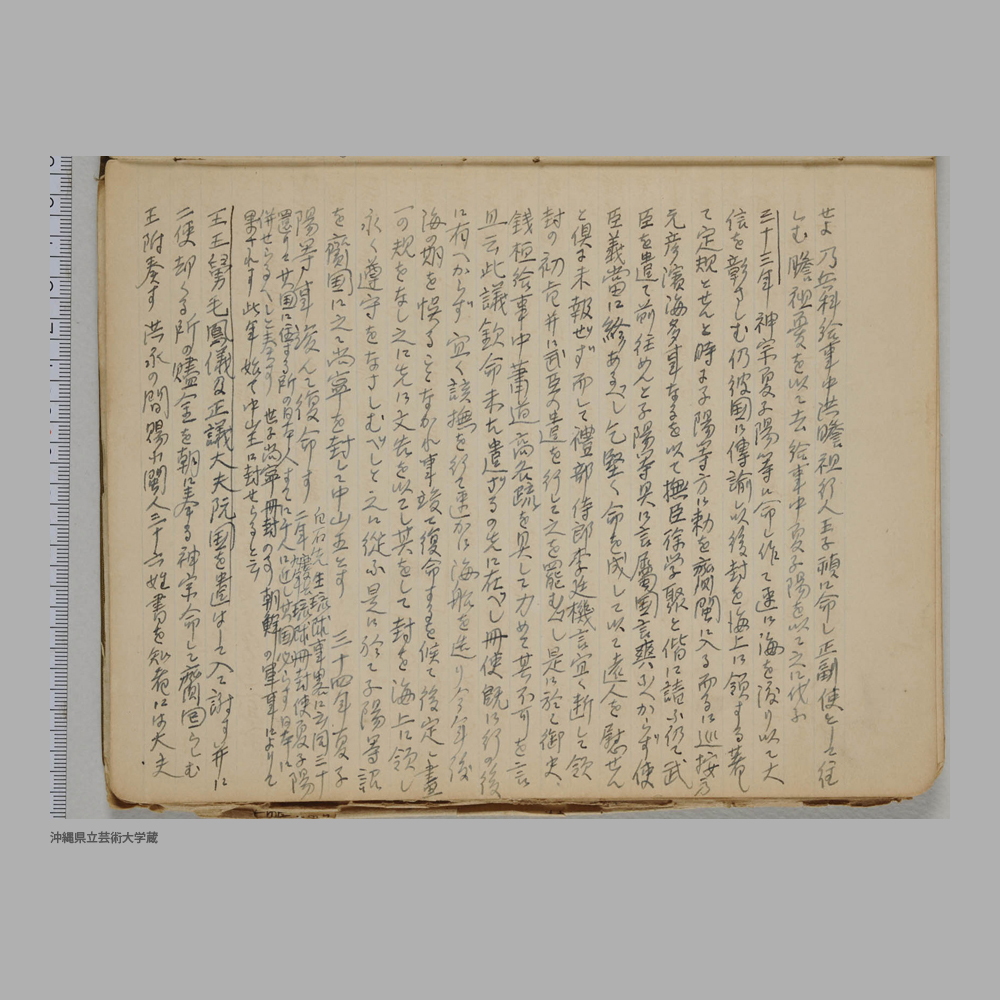 せよ乃兵科給事中洪瞻祖行人王士禎に命し正副使として往
しむ瞻祖憂を以て去給事中夏子陽を以て之に代ふ
三十三年神宗夏子陽等に命し作て速に海を渡り以て大
信を彰さしむ仍彼国に傳諭し以後封を海上に領する著し
て定規とせんと時に子陽等方に勅を齎閩に入る而るに巡按方
元彦濱海多事なるを以て撫臣徐学聚と偕に請ふ仍て武
臣を遣て前往めんと子陽等具に言属国言爽ふへからず使
臣義當に終あるべし乞堅く命を成して以て遠人を慰せん
と倶に未報せず而して禮部侍郎李廷機言宜く断して領
封の初 并に武臣の遣を行して之を罷むべし是に於て御史
銭桓給事中蕭近高各疏を具して力めて其不可を言
且云此議欽命未た遣ざるの先に在べし冊使既に行の後
に有へからず宜く該撫を行て速かに海舩を造り今年後
海の期を悞ることなかれ事竣て復命するを候て後定し画
一の規をなし之に先に文告を以てし其をして封を海上に領し
永く遵守をなさしむべしと之に従ふ是に於て子陽等詔
を齎国に之て尚寧を封して中山王とす 三十四年夏子
陽等事竣んで復命す 白石先生琉球事畧に云同三十
二年 琉球冊封使夏子陽
還りて其国に 所の日本人すでに千人に近し其国必らず日本に
併せらるべしと奏す 世子尚寧冊封の事朝鮮の軍事によりて
果されず此年始て中山王に封せらると云
王王舅毛鳳儀及正議大夫阮国を遣はして入て謝す并に
二使却くる所の贐金を朝に奉る神宗命して齎回らしむ
王附奏す洪永の間賜ふ閩人三十六姓書を知者には大夫
沖縄県立芸術大学蔵